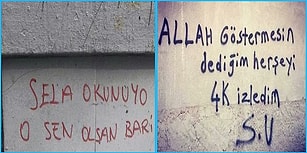 SELA OKUNUYO
O SEN OLSAN BARİ
ALLAH GöstERMESİN
dediğim hERŞEyi
4K izledim
S.V